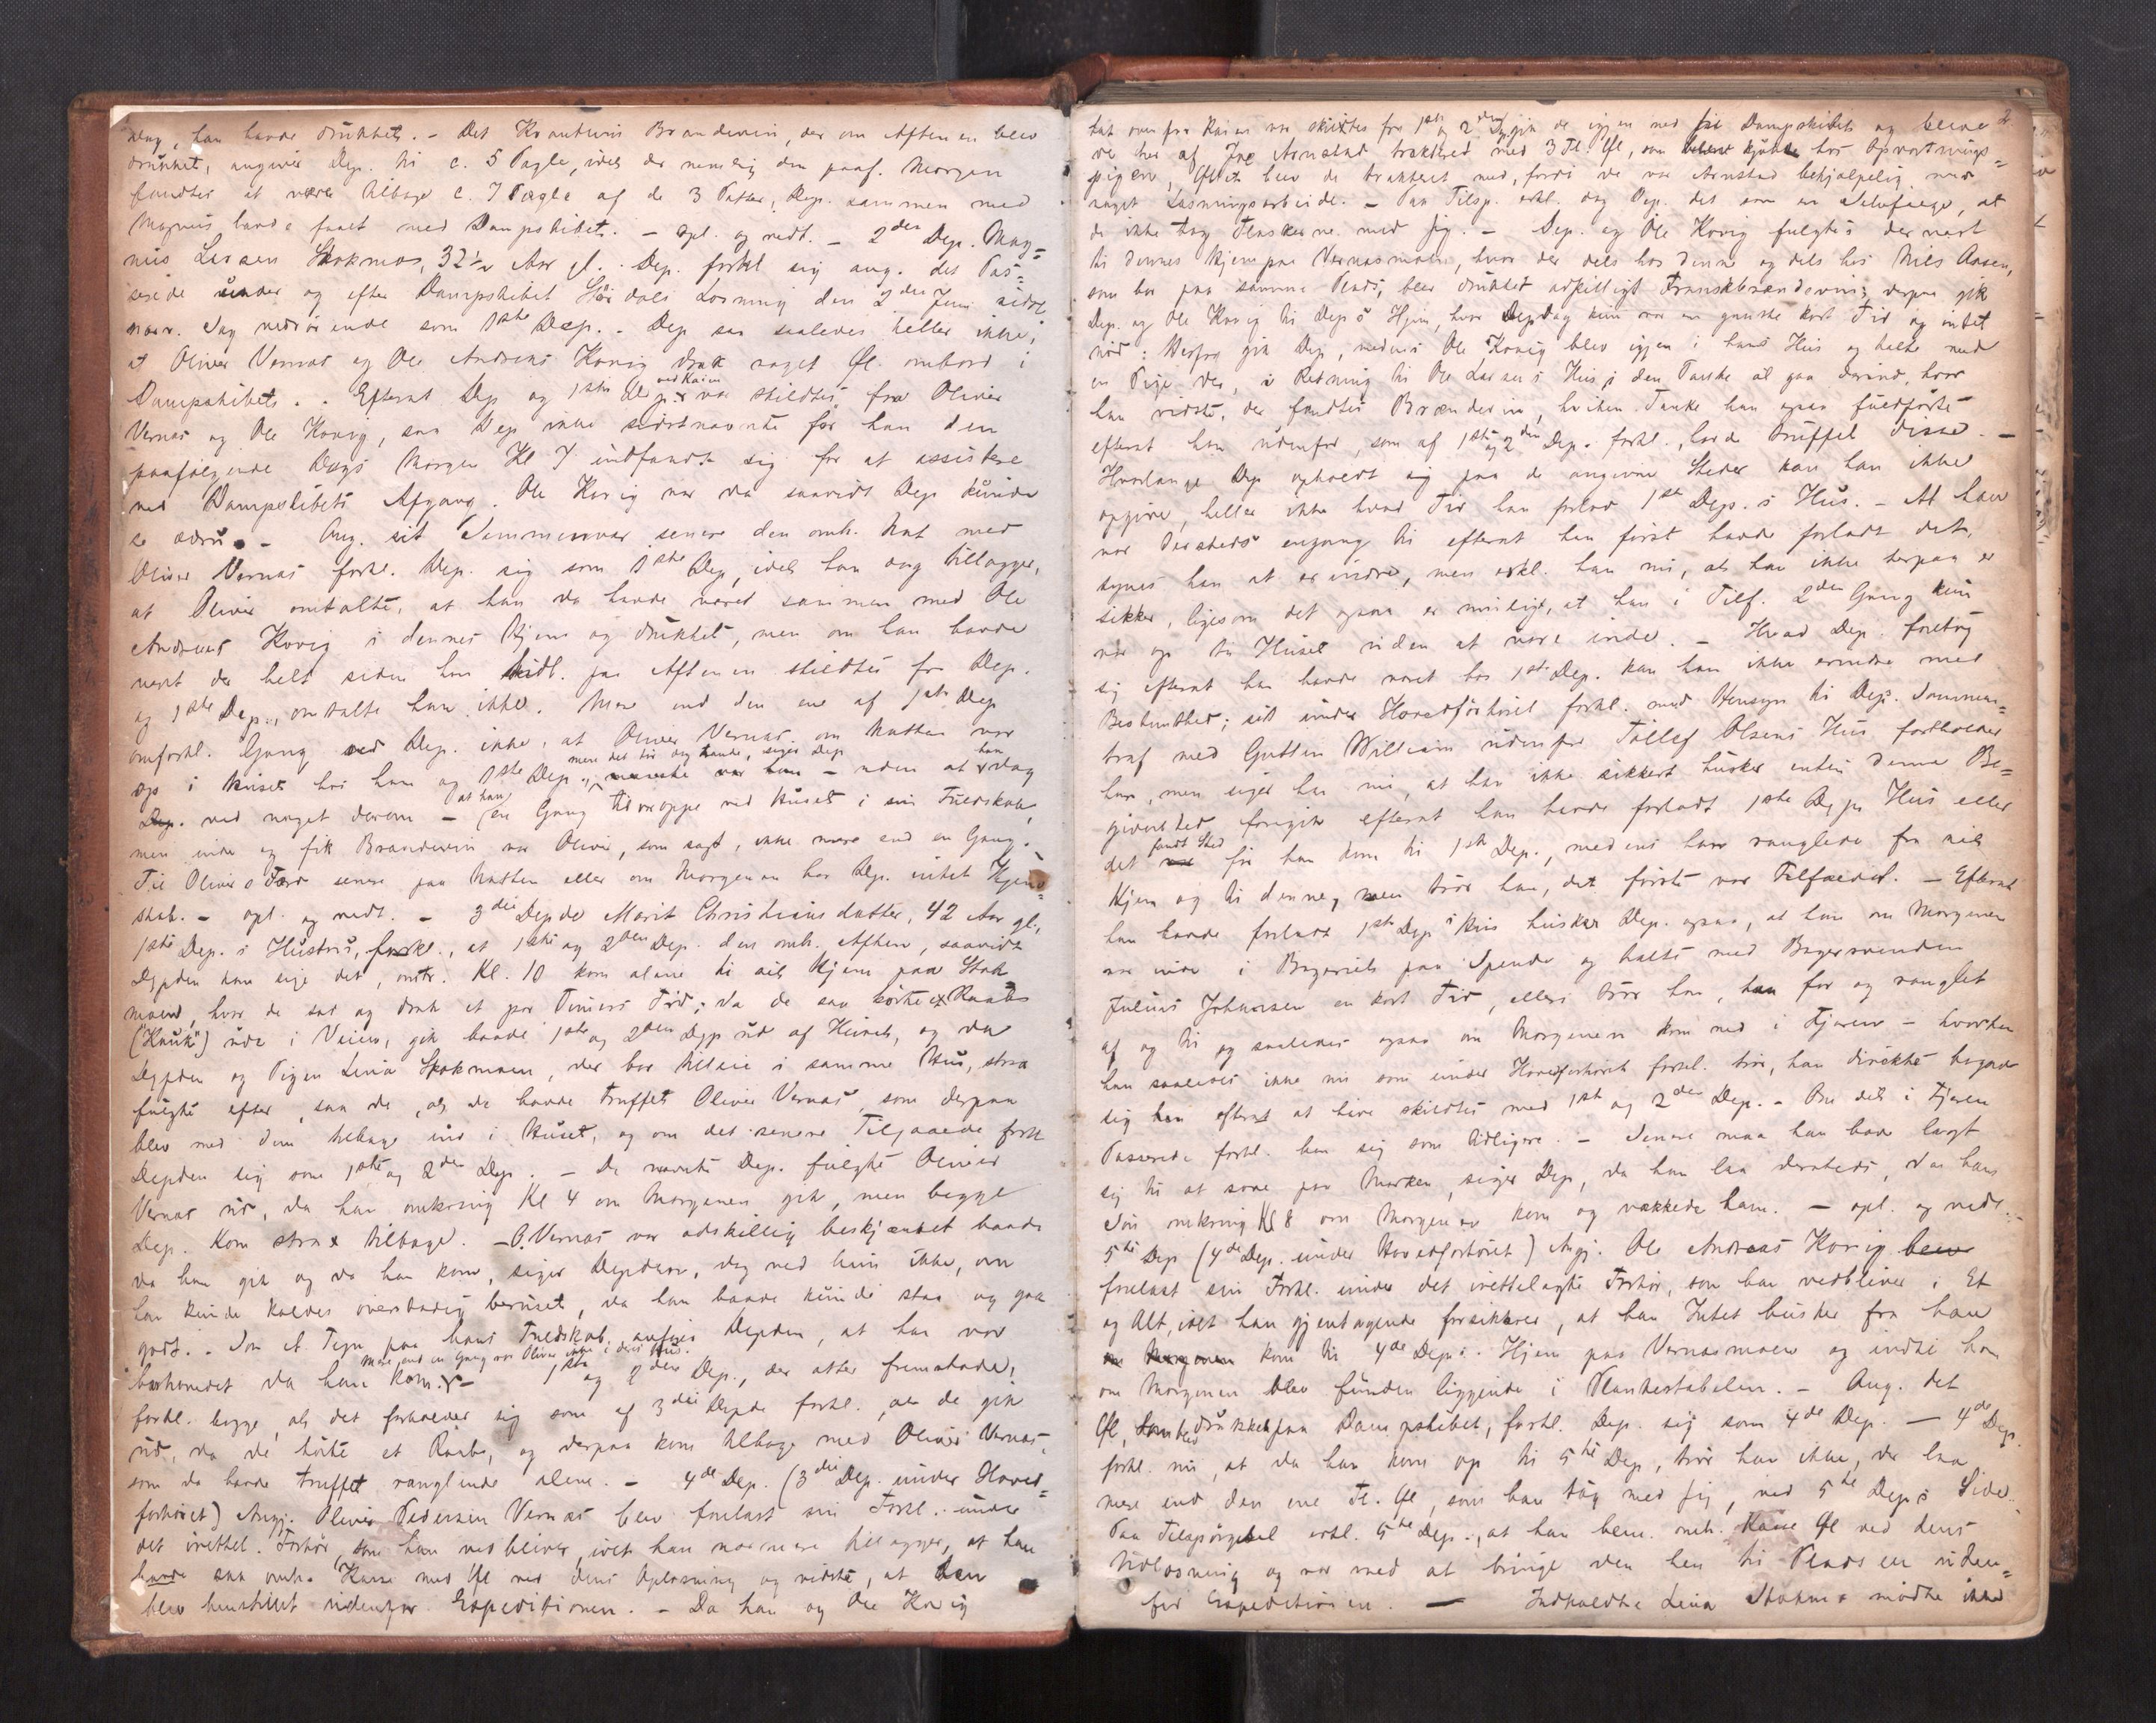 Slag, han havde drukket. – Det Kvantum Brændeviin, der om Aftenen blev
drukket, angiver Dep. til c. 5 Pægle, idet der nemlig den paaf. Morgen
fandtes at være tilbage c. 7 Pægle af de 3 Potter, Dep. sammen med
Magnus havde faaet med Dampskibet. – opl. og vedt. – 2den Dep. Mag=
nus Larsen Stokmo, 32 1/2 Aar gl. Dep. forkl sig ang. det Pas=
serede under og efter Dampskibet Hördals Losning den 2den Juni sidst
nærv. Sag vedrörende som 1ste Dep. – Dep saa saaledes heller ikke,
at Oliver Vernæs og Ole Andreas Hovig drak noget Öl ombord i
Dampskibet. – Efterat Dep og 1ste Dep. ved Kaien var skildtes fra Oliver
Vernæs og Ole Hovig, saa Dep ikke sidstnævnte för han den
paafölgende Dags Morgen Kl 7 indfandt sig for at assistere
ved Dampskibets Afgang. Ole Hovig var da saavidt Dep kunde
se ædru. – Ang. sit Sammenvær senere den omh. Nat med
Oliver Vernæs forkl. Dep. sig som 1ste Dep, idet han dog tillægger,
at Oliver omtalte, at han da havde været sammen med Ole
Andreas Hovig i dennes Hjem og drukket, men om han havde
været der helt siden han tidl. paa Aftenen skildtes fra Dep.
og 1ste Dep., omtalte han ikke. Mere end den ene af 1ste Dep
omforkl. Gang ved Dep. ikke, at Oliver Vernæs om Natten var
op i Huset hos ham og 1ste Dep., men det tör dog hænde, siger Dep – uden at han dog
ved noget derom – at han en Gang til var oppe ved Huset i sin Fuldskab,
men inde og fik Brændeviin var Oliver, som sagt, ikke mere end en Gang. –
Til Olivers Færd senere paa Natten eller om Morgenen har Dep. intet Kjend=
skab. – opl. og vedt. – 3die Depde Marit Christiansdatter, 42 Aar gl.,
1ste Dep.s Hustru, forkl., at 1ste og 2den Dep. den omh. Aften, saavidt
Depden kan sige det, omtr. Kl. 10 kom alene til sit Hjem paa Stok
moen, hvor de sat og drak et par Timers Tid; da de saa hörte et Raab
(Hauk) ude i Veien, gik baade 1ste og 2den Dep ud af Huset, og da
Depden og Pigen Lina Stokmoen, der bor tilleie i samme Hus, strax
fulgte efter, saa de, at de havde truffet Oliver Vernæs, som derpaa
blev med dem tilbage ind i Huset, og om det senere Tilgaaede forkl
Depden sig som 1ste og 2den Dep. – De nævnte Dep. fulgte Oliver
Vernæs ud, da han omkring Kl 4 om Morgenen gik, men begge
Dep. kom strax tilbage. – O. Vernæs var adskillig beskjænket baade
da han gik og da han kom, siger Depden, dog ved hun ikke, om
han kunde kaldes överstadig beruset, da han baade kunde staa og gaa
godt. – Som et Tegn paa hans Fuldskab anförer Depden, at han var
barhovedet da han kom. Mere end en Gang var Oliver ikke i deres Hus. – 1ste og 2den Dep., der atter fremstode,
forkl. begge, at det forholder sig som af 3die Depde forkl., at de gik
ud, da de hörte et Raab, og derpaa kom tilbage med Oliver Vernæs,
som de havde truffet ranglende alene. – 4de Dep. (3die Dep. under Hoved=
forhöret) Angj. Oliver Pedersen Vernæs blev forelæst sin Forkl. under
det irettel. Forhör, som han vedbliver, idet han nærmere tillægger, at han
havde saa omh. Kasse med Öl ved dens Oplosning og vidste, at den
blev henstillet udenfor Expeditionen. – Da han og Ole Hovig
2.
tæt ovenfor Kaien var skildtes fra 1ste og 2den Dep, gik de igjen ned til Dampskibet og bleve
de her af Arnstad trakteret med 3 Fl. Öl, som kjöbtes hos Opvartnings=
pigen, Öllet blev de trakteret med, fordi de var Arnstad behjælpelig med
noget Læsningsarbeide. – Paa Tilsp. erkl. dog Dep. det som en Selvfölge, at
de ikke tog Flaskerne med sig. – Dep. og Ole Hovig fulgtes dernæst
til dennes Hjem paa Vernæsmoen, hvor der dels hos denne og dels hos Nils Aasen,
som bor paa samme Plads, blev drukket adskilligt Franskbrændeviin; derpaa gik
Dep. og Ole Hovig til Dep.s Hjem, hvor Dep dog kun var en ganske kort Tid og intet
nöd: Derfra gik Dep, medens Ole Hovig blev igjen i hans Hus og talte med
en Pige der, i Retning til Ole Larsens Hus i den Tanke at gaa derind, hvor
han vidste, der fandtes Brændeviin, hvilken Tanke han ogsaa fuldförte
efterat han udenfor, som af 1ste og 2den Dep. forkl., havde truffet disse. –
Hvorlænge Dep opholdt sig paa de angivne Steder kan han ikke
opgive, heller ikke hvad Tid han forlod 1ste Dep.s Hus. – At han
var dersteds engang til efterat han först havde forladt det,
synes han at erindre, men erkl. han nu, at han ikke herpaa er
sikker, ligesom det ogsaa er muligt, at han i Tilf. 2den Gang kun
var op til Huset uden at være inde. – Hvad Dep. foretog
sig efterat han havde været hos 1ste Dep. kan han ikke erindre med
Bestemthed; sit under Hovedforhöret forkl. med Hensyn til Dep.s Sammen=
træf med Gutten William udenfor Tollef Olsens Hus fastholder
han, men siger han nu, at han ikke sikkert husker enten denne Be=
givenhed foregik efterat han havde forladt 1ste Deps Hus eller
det fandt Sted för han kom til 1ste Dep., medens han ranglede fra sit
Hjem og til denne, men tror han, det förste var Tilfældet. – Efterat
han havde forladt 1ste Deps Hus husker Dep. ogsaa, at han om Morgenen
var inde i Bageriet paa Spende og talte med Bagersvenden
Julius Johansen en kort Tid, ellers tror han, han for og ranglet
af og til og saaledes ogsaa om Morgenen kom ned i Fjæren – hvorhen
han saaledes ikke nu som under Hovedforhöret forkl. tror, han direkte begav
sig hen efterat at have skildtes med 1ste og 2den Dep. – Om det i Fjæren
Passerede forkl. han sig som tidligere. – Senere maa han have lagt
sig til at sove paa Marken, siger Dep, da han laa dersteds, da hans
Sön omkring Kl 8 om Morgenen kom og vækkede ham. – opl. og vedt. –
5te Dep (4de Dep. under Hovedforhöret) Angj. Ole Andreas Hovig blev
forelæst sin Forkl. under det irettelagte Forhör, som han vedbliver i Et
og Alt, idet han gjentagende forsikkrer, at han Intet husker fra han
kom til 4de Deps. Hjem paa Vernæsmoen og indtil han
om Morgenen blev funden liggende i Plankestabelen. – Ang. det
Öl, som blev drukket paa Dampskibet, forkl. Dep. sig som 4de Dep. – 4de Dep.
forkl. nu, at da han kom op til 5te Dep, tror han ikke, der laa
mere end den ene Fl. Öl, som han tog med sig, ved 5te Deps Side.
Paa Tilspörgsel erkl. 5te Dep., at han bem. omh. Kasse Öl ved dens
Udlosning og var med at bringe den hen til Pladsen uden=
for Expeditionen. – Indkaldte Lina Stokmo mödte ikke